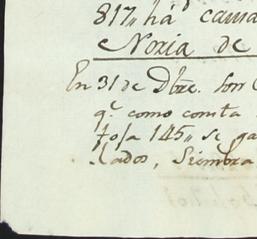 817„ há cama
Noria de
En 31 de Dbre. son
q.e como consta
tosa 145„ se ga
lados, Siembra